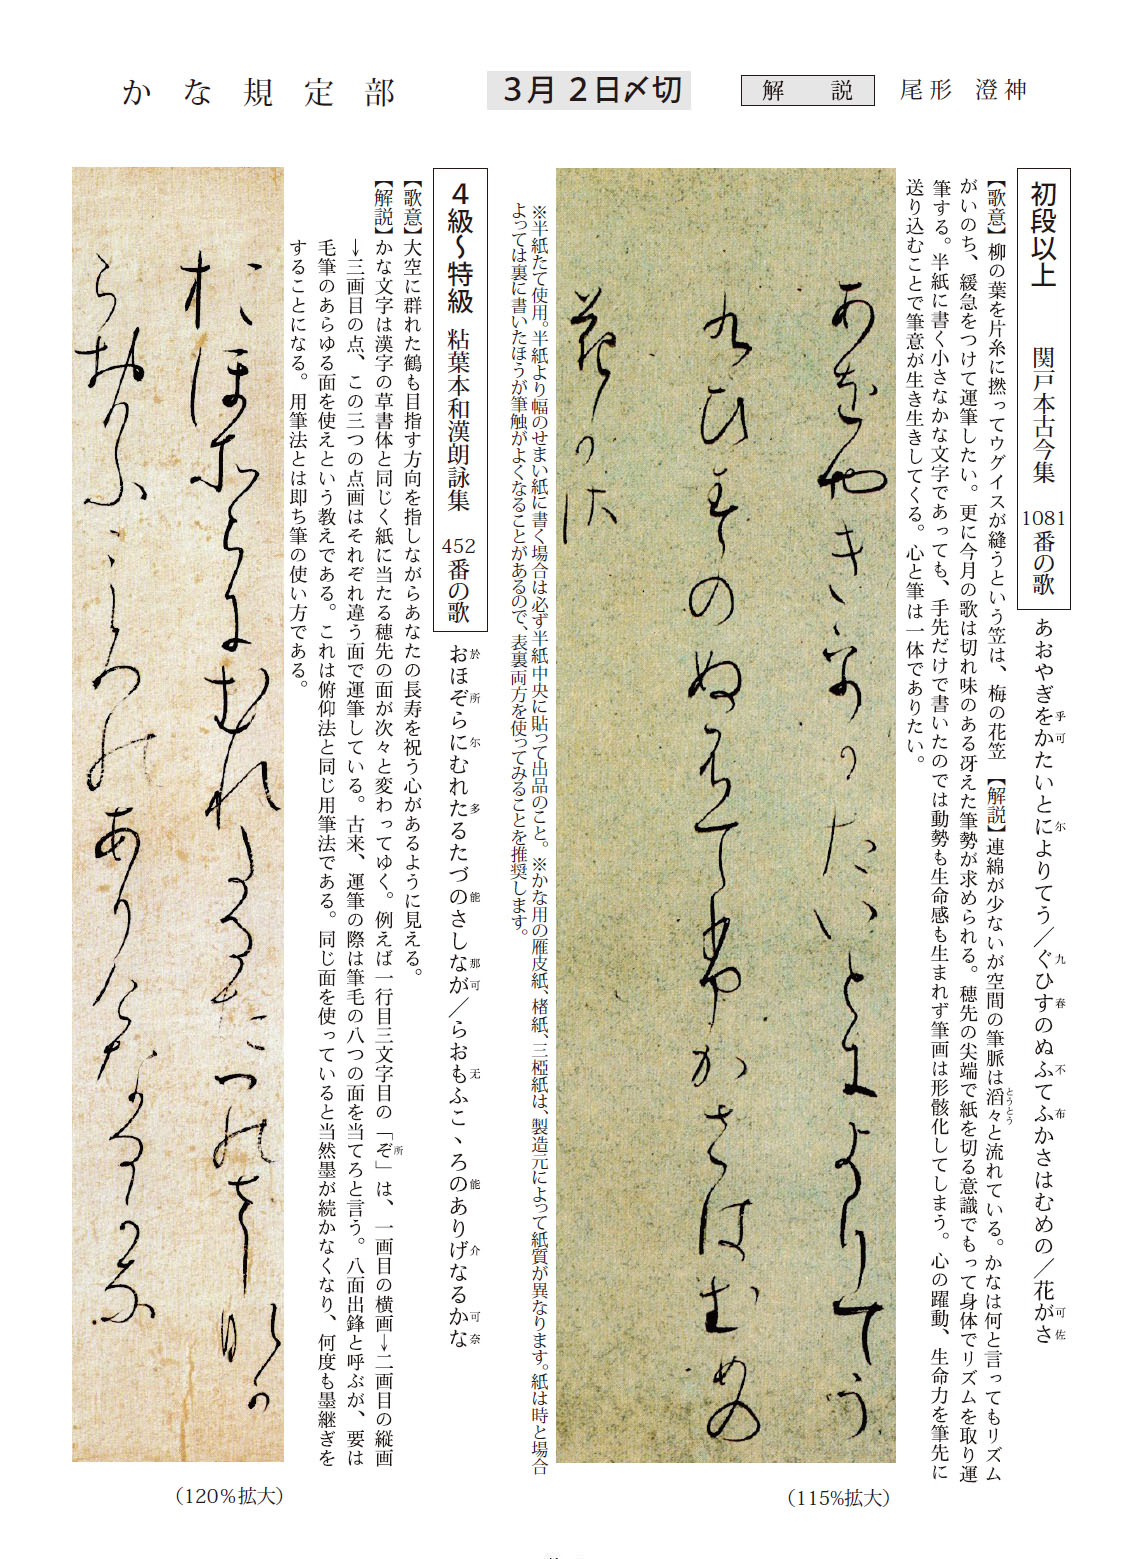 かな規定部
３月２日〆切
解説
尾形 澄神
初段以上 関戸本古今集 1081番の歌
あおやぎを乎か可たいとに尓よりてう／ぐ九ひす春のぬふ不てふ布かさはむめの／花が可さ佐
【歌意】柳の葉を片糸に撚ってウグイスが縫うという笠は、梅の花笠 【解説】連綿が少ないが空間の筆脈は滔々とうとうと流れている。かなは何と言ってもリズム
がいのち、緩急をつけて運筆したい。更に今月の歌は切れ味のある冴えた筆勢が求められる。穂先の尖端で紙を切る意識でもって身体でリズムを取り運
筆する。半紙に書く小さなかな文字であっても、手先だけで書いたのでは動勢も生命感も生まれず筆画は形骸化してしまう。心の躍動、生命力を筆先に
送り込むことで筆意が生き生きしてくる。心と筆は一体でありたい。
あを乎やきか可たいとに尓よりてう
九ひ春のぬ不て布かさはむめの
花か可佐
（115%拡大）
※半紙たて使用。半紙より幅のせまい紙に書く場合は必ず半紙中央に貼って出品のこと。※かな用の雁皮紙、楮紙、三椏紙は、製造元によって紙質が異なります。紙は時と場合
よっては裏に書いたほうが筆触がよくなることがあるので、表裏両方を使ってみることを推奨します。
４級〜特級 粘葉本和漢朗詠集 452番の歌
お於ほぞ所らに尓むれた多るたづの能さしな那が可／らおも无ふこヽろの能ありげ介なるか可な奈
【歌意】大空に群れた鶴も目指す方向を指しながらあなたの長寿を祝う心があるように見える。
【解説】かな文字は漢字の草書体と同じく紙に当たる穂先の面が次々と変わってゆく。例えば一行目三文字目の「ぞ所」は、一画目の横画→二画目の縦画
→三画目の点、この三つの点画はそれぞれ違う面で運筆している。古来、運筆の際は筆毛の八つの面を当てろと言う。八面出鋒と呼ぶが、要は
毛筆のあらゆる面を使えという教えである。これは俯仰法と同じ用筆法である。同じ面を使っていると当然墨が続かなくなり、何度も墨継ぎを
することになる。用筆法とは即ち筆の使い方である。
於ほ所らに尓むれ多るたつ能さし那可
らお无ふこヽろ能あり介なる可奈
（120%拡大）